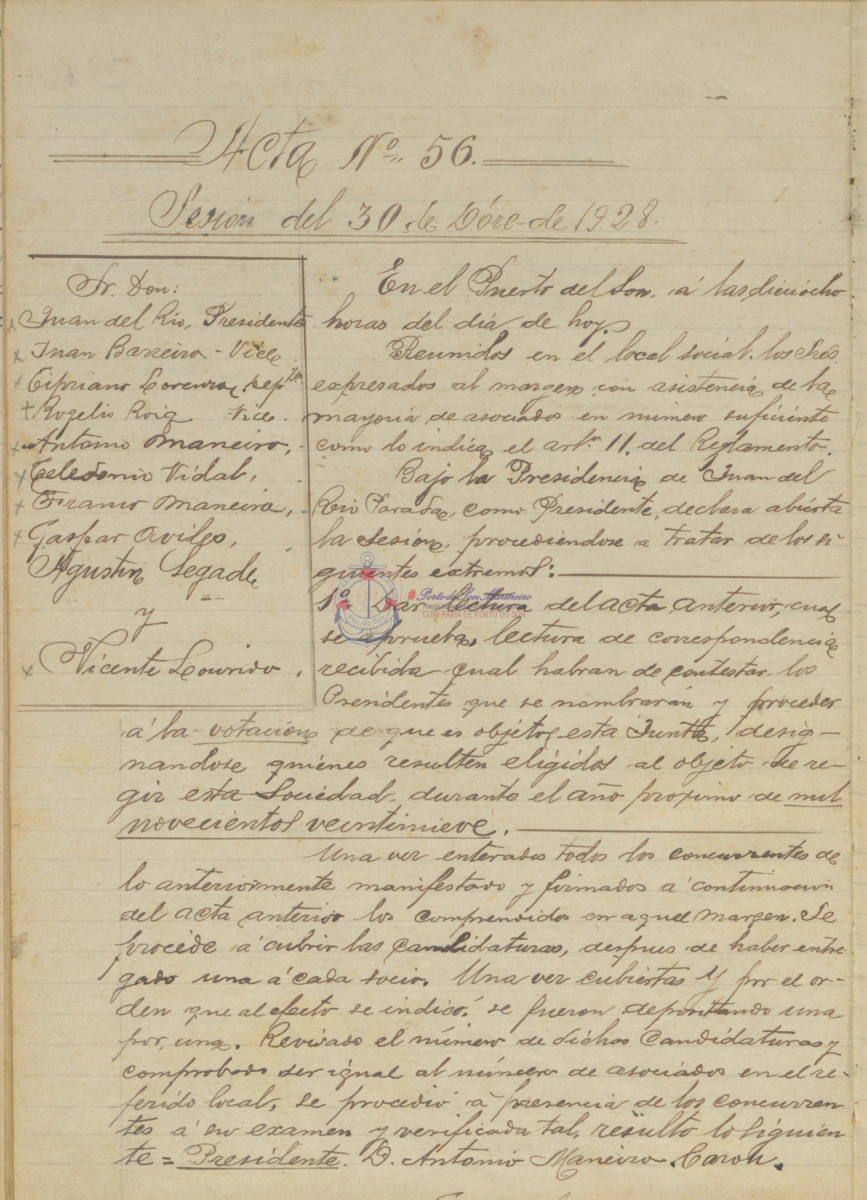 Acta Nº 56.
Sesión del 30 de Dbre de 1928.
Sr. Don:
Juan del Río, Presidente
Juan Barreiro - Vice
Cipriano Lorenzo, Sepᵗᵉ
Rogelio Roig Vice
Antonio Maneiro,
Celedonio Vidal,
Franco Maneiro,
Gaspar Aviles,
Agustin Segade
y
Vicente Lourido.
En el Puerto del Son, á las dieciocho
horas del día de hoy.
Reunidos en el local social, los Sres
expresados al margen con asistencia de la
mayoria de asociados en número suficiente
como lo indica el artº 11. del Reglamento.
Bajo la Presidencia de Juan del
Rio Parada, como Presidente, declara abierta
la Sesión, procediendose a tratar de los si-
guientes extremos:
1º Dar lectura del acta anterior, cual
se aprueba, lectura de correspondencia
recibida cual habran de contestar los
Presidentes que se nombrarán y proceder
á la votación de que es objeto esta Junta, desig-
nandose quiénes resulten elígidos al objeto de re-
gir esta Sociedad, durante el año proximo de mil
novecientos veintinueve.
Una vez enterados todos los concurrentes de
lo anteriormente manifestado y firmados á continuacion
del acta anterior los comprendidos en aquel margen. Se
procede á cubrir las candidaturas, despues de haber entre-
gado una á cada socio. Una vez cubiertas y por el or-
den que al efecto se indicó, se fueron depositando una
por una. Revisado el número de dichas Candidaturas y
comprobado ser igual al número de asociados en el re-
ferido local, se procedió á presencia de los concurren
tes á su examen y verificada tal, resultó lo siguien
te = Presidente. D. Antonio Maneiro Caron.
Porto do Son Mariñeiro
CONFRARÍA DE PORTO DO SON